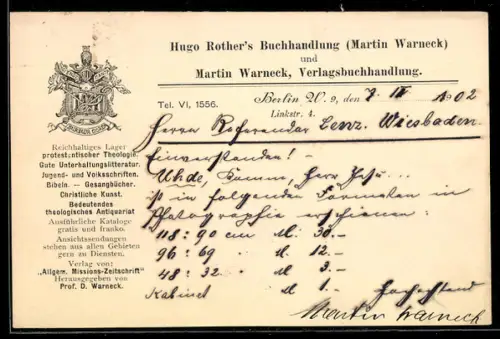 Hugo Rother's Buchhandlung (Martin Warneck)
und
Martin Warneck, Verlagsbuchhandlung.
Tel. VI, 1556.
Berlin W. 9, den 7 III 1902
Linkstr. 4.
Reichhaltiges Lager
protestantischer Theologie.
Gute Unterhaltungslitteratur.
Jugend- und Volksschriften.
Bibeln. — Gesangbücher.
Christliche Kunst.
Bedeutendes
theologisches Antiquariat
Ausführliche Kataloge
gratis und franko.
Ansichtssendungen
stehen aus allen Gebieten
gern zu Diensten.
Verlag von:
„Allgem. Missions-Zeitschrift"
Herausgegeben von
Prof. D. Warneck.
Herrn Referendar Lenz. Wiesbaden.
Einverstanden! —
Uhde, Komm, Herr Jesu...
ist in folgenden Formaten in
Photographie erschienen:
118 : 90 cm M. 30.—
96 : 69 M. 12.—
48 : 32 M. 3.—
Kabinet M. 1.—
Hochachtend
Martin Warneck